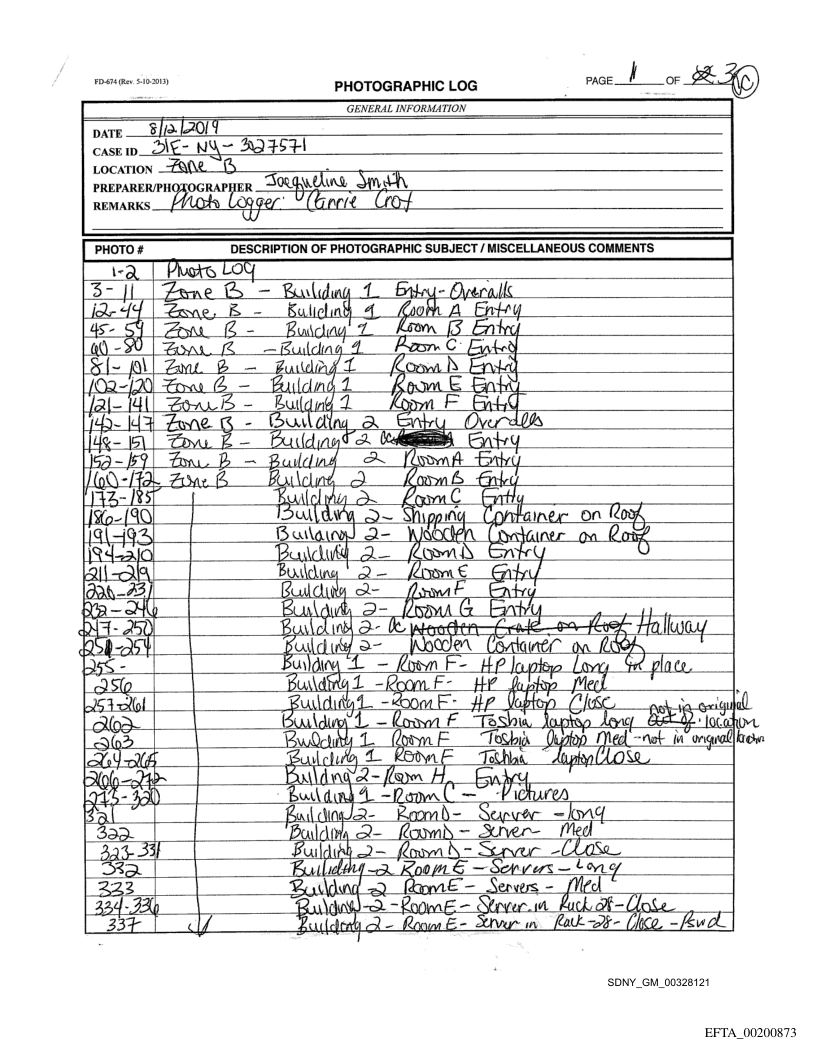 FD-674 (Rev. 5-10-2013)
PHOTOGRAPHIC LOG
PAGE 1 OF 3
GENERAL INFORMATION
DATE 8/12/2019
CASE ID 31E-NY-3027571
LOCATION Zone B
PREPARER/PHOTOGRAPHER Jacqueline Smith
REMARKS Photo Logger:
PHOTO # DESCRIPTION OF PHOTOGRAPHIC SUBJECT / MISCELLANEOUS COMMENTS
1-2 Photo LOG
3-11 Zone B - Building 1 Entry-Overalls
12-44 Zone B - Building 1 Room A Entry
45-59 Zone B - Building 1 Room B Entry
60-80 Zone B - Building 1 Room C Entry
81-101 Zone B - Building 1 Room D Entry
102-120 Zone B - Building 1 Room E Entry
121-141 Zone B - Building 1 Room F Entry
142-147 Zone B - Building 2 Entry Overalls
148-151 Zone B - Building 2 Entry
152-159 Zone B - Building 2 Room A Entry
160-172 Zone B Building 2 Room B Entry
173-185 Building 2 Room C Entry
186-190 Building 2- Shipping Container on Roof
191-193 Building 2- Wooden Container on Roof
194-210 Building 2- Room D Entry
211-219 Building 2- Room E Entry
220-231 Building 2- Room F Entry
232-246 Building 2- Room G Entry
247-250 Building 2- Wooden Crate on Roof Hallway
251-254 Building 2- Wooden Container on Roof
255- Building 1 - Room F- HP laptop Long in place
256 Building 1 - Room F- HP laptop Med
257-261 Building 1 - Room F- HP laptop Close
262 Building 1 - Room F Toshia laptop long not in original location
263 Building 1 Room F Toshia laptop Med -not in original
264-265 Building 1 Room F Toshia laptop Close
266-272 Building 2-Room H Entry
273-320 Building 1 -Room C - Pictures
321 Building 2- Room D- Server -long
322 Building 2- Room D - Server- Med
323-331 Building 2- Room D -Server -Close
332 Building -2 Room E -Servers- Long
333 Building -2 Room E- Servers - Med
334-336 Building -2 -Room E- Server in Rack 28-Close
337 Building 2- Room E- Server in Rack-28- Close -Pswd
SDNY_GM_00328121
EFTA_00200873